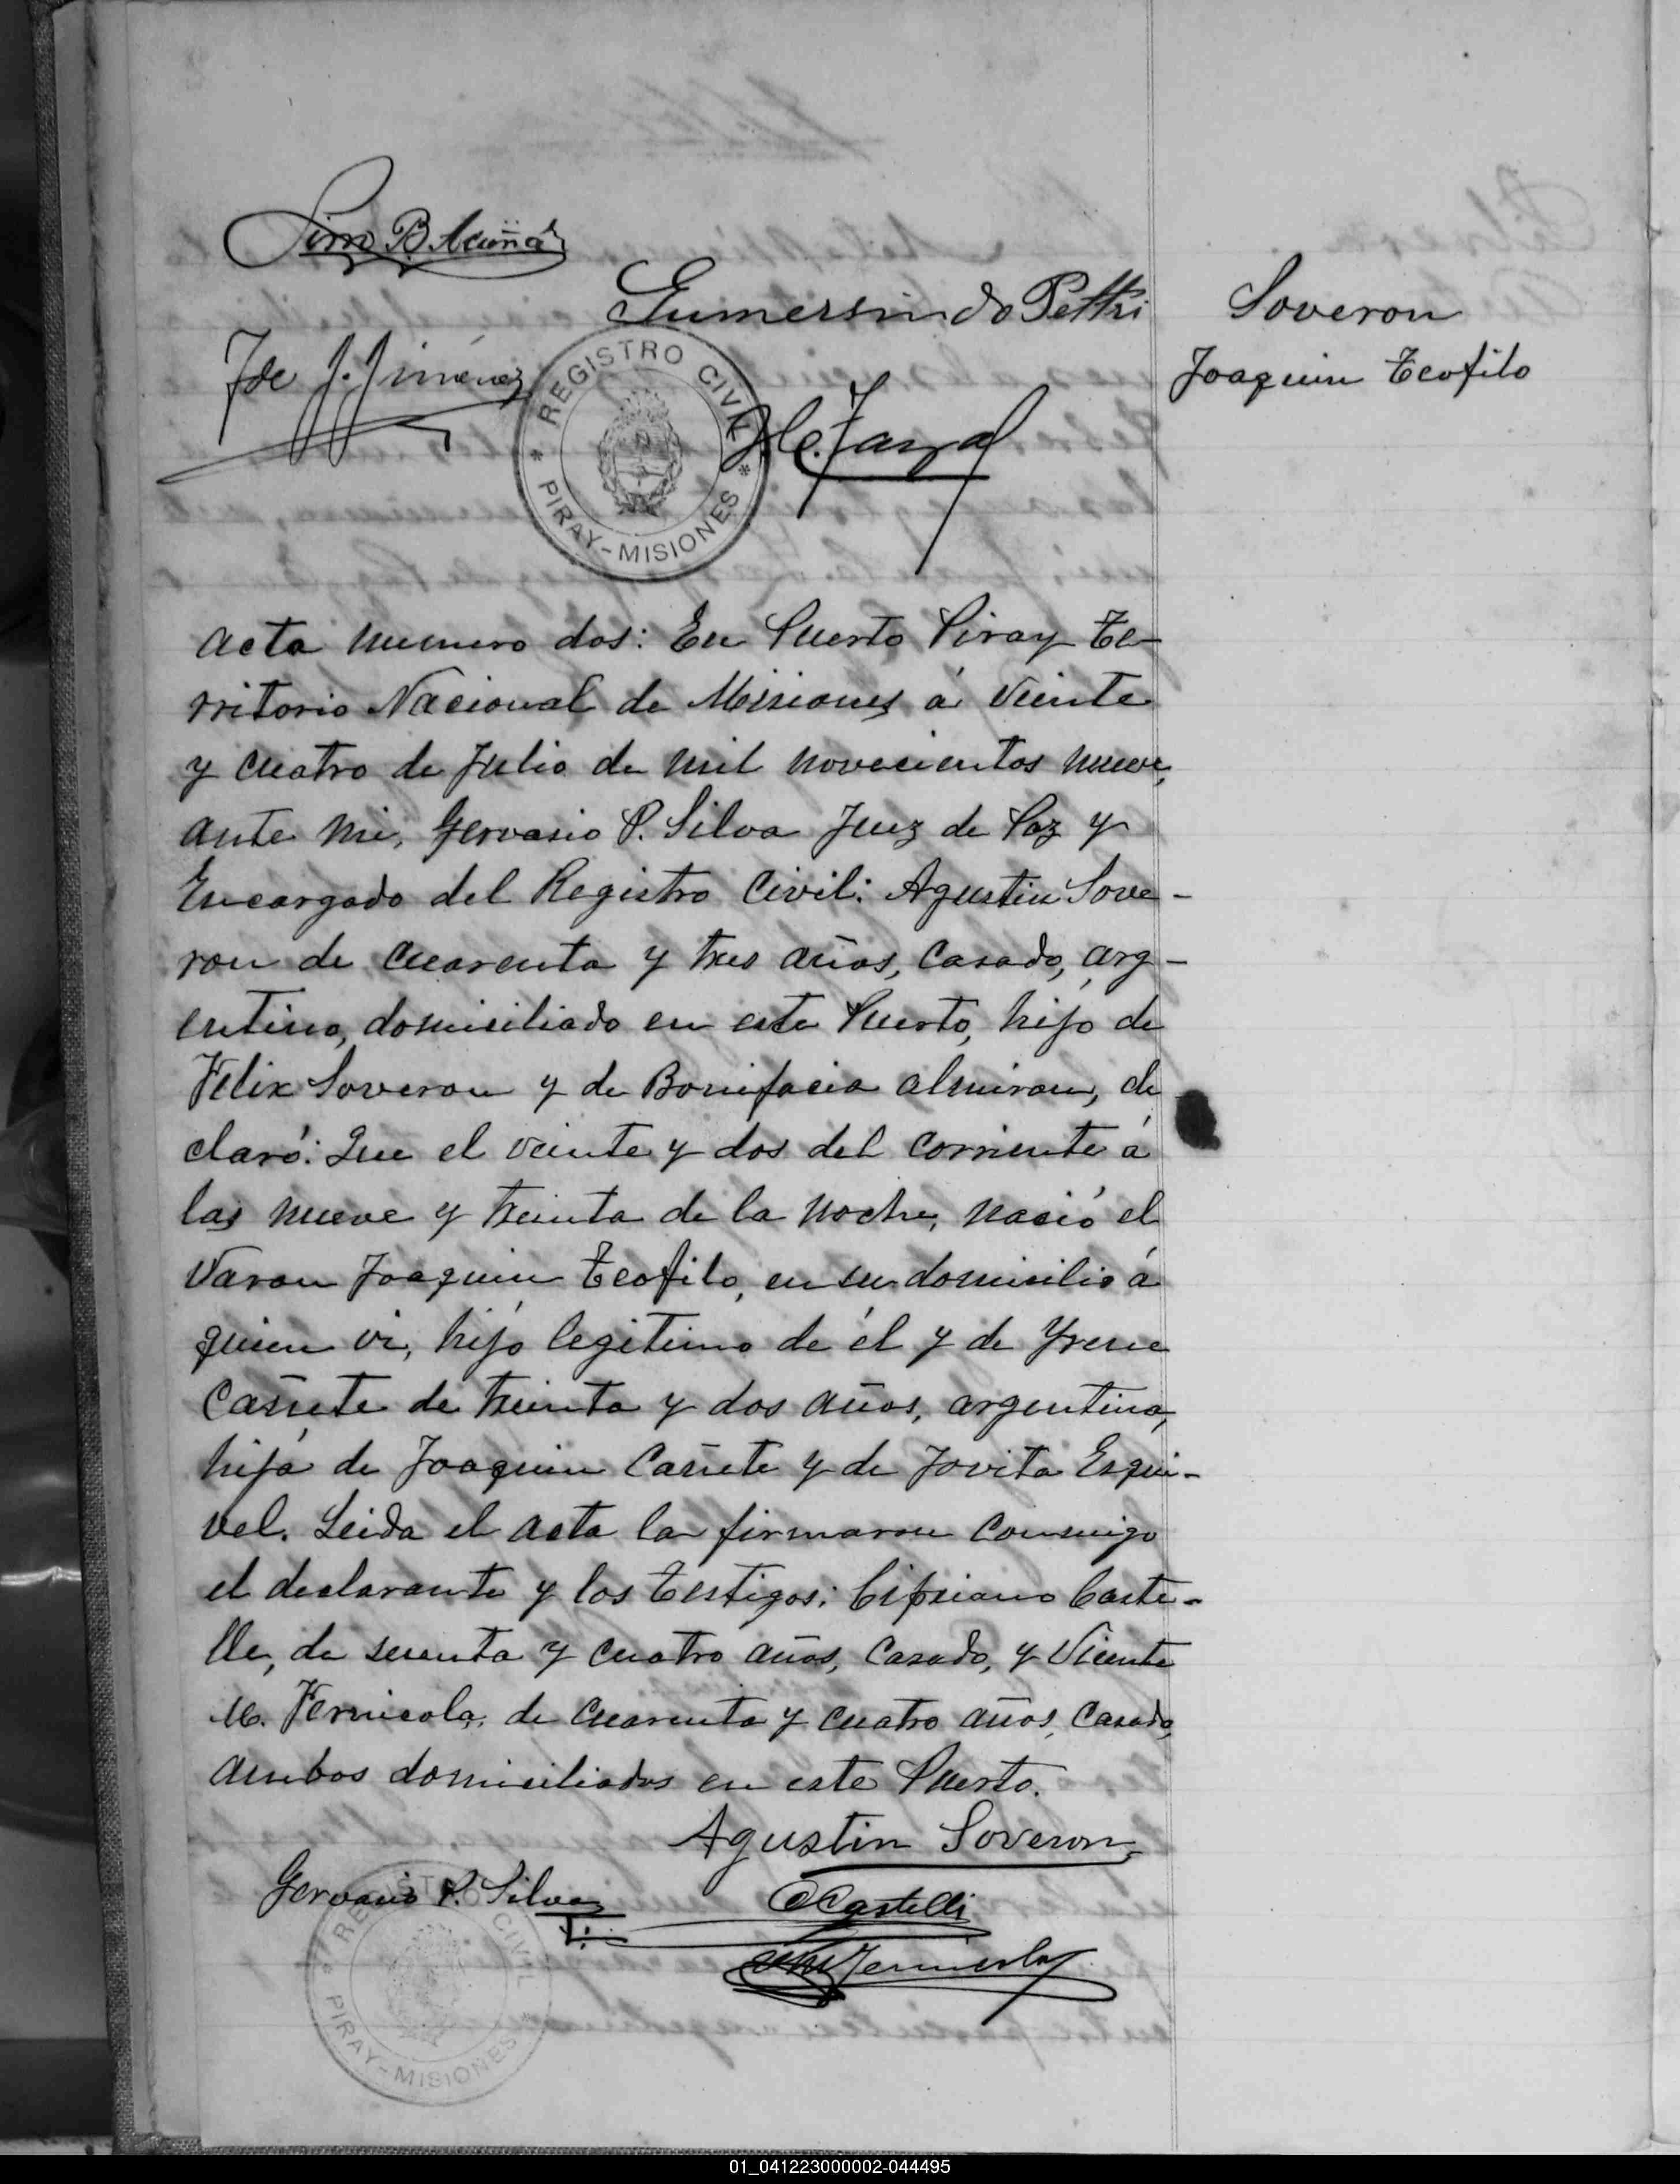 Sim B. Acuña
Gumersindo Pettri
Soveron
Joaquin Teofilo
Jóe J. Jimenez
REGISTRO CIVIL
PIRAY-MISIONES
acta numero dos: En Puerto Piray Te-
rritorio Nacional de Misiones á veinte
y cuatro de Julio de mil novecientos nueve,
ante mi, Gervasio P. Silva Juez de Paz y
Encargado del Registro Civil: Agustin Sove-
ron de cuarenta y tres años, casado, arg-
entino, domiciliado en este Puerto, hijo de
Felix Soveron y de Bonifacia almiron, de
claró: Que el veinte y dos del corriente á
las nueve y treinta de la noche, nació el
varon Joaquin Teofilo, en su domicilio á
quien vi, hijo legitimo de él y de Yrene
Cañete de treinta y dos años, argentina,
hija de Joaquin Cañete y de Jovita Esqui-
vel. Leida el acta la firmaron conmigo
el declarante y los testigos: Cipriano Caste-
lle, de sesenta y cuatro años, casado, y Vicente
M. Fernicola, de cuarenta y cuatro años, casado,
ambos domiciliados en este Puerto.
Agustin Soveron
Gervasio P. Silva
CCastelli
REGISTRO CIVIL
PIRAY-MISIONES
01_041223000002-044495